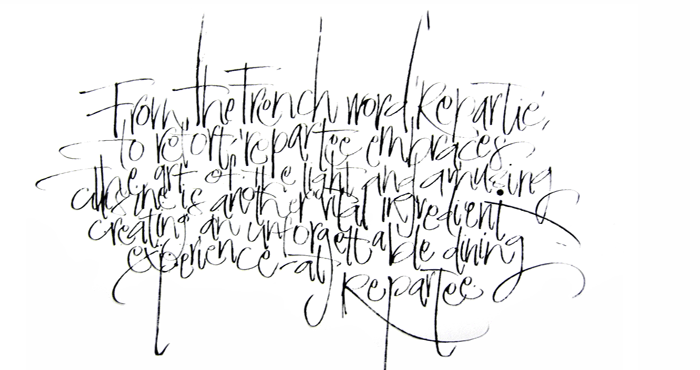 From the French word 'Repartie',
to retort 'repartee embraces
the art of the light and amusing
cuisine is another vital ingredient
creating an unforgettable dining
experience - at
Repartee